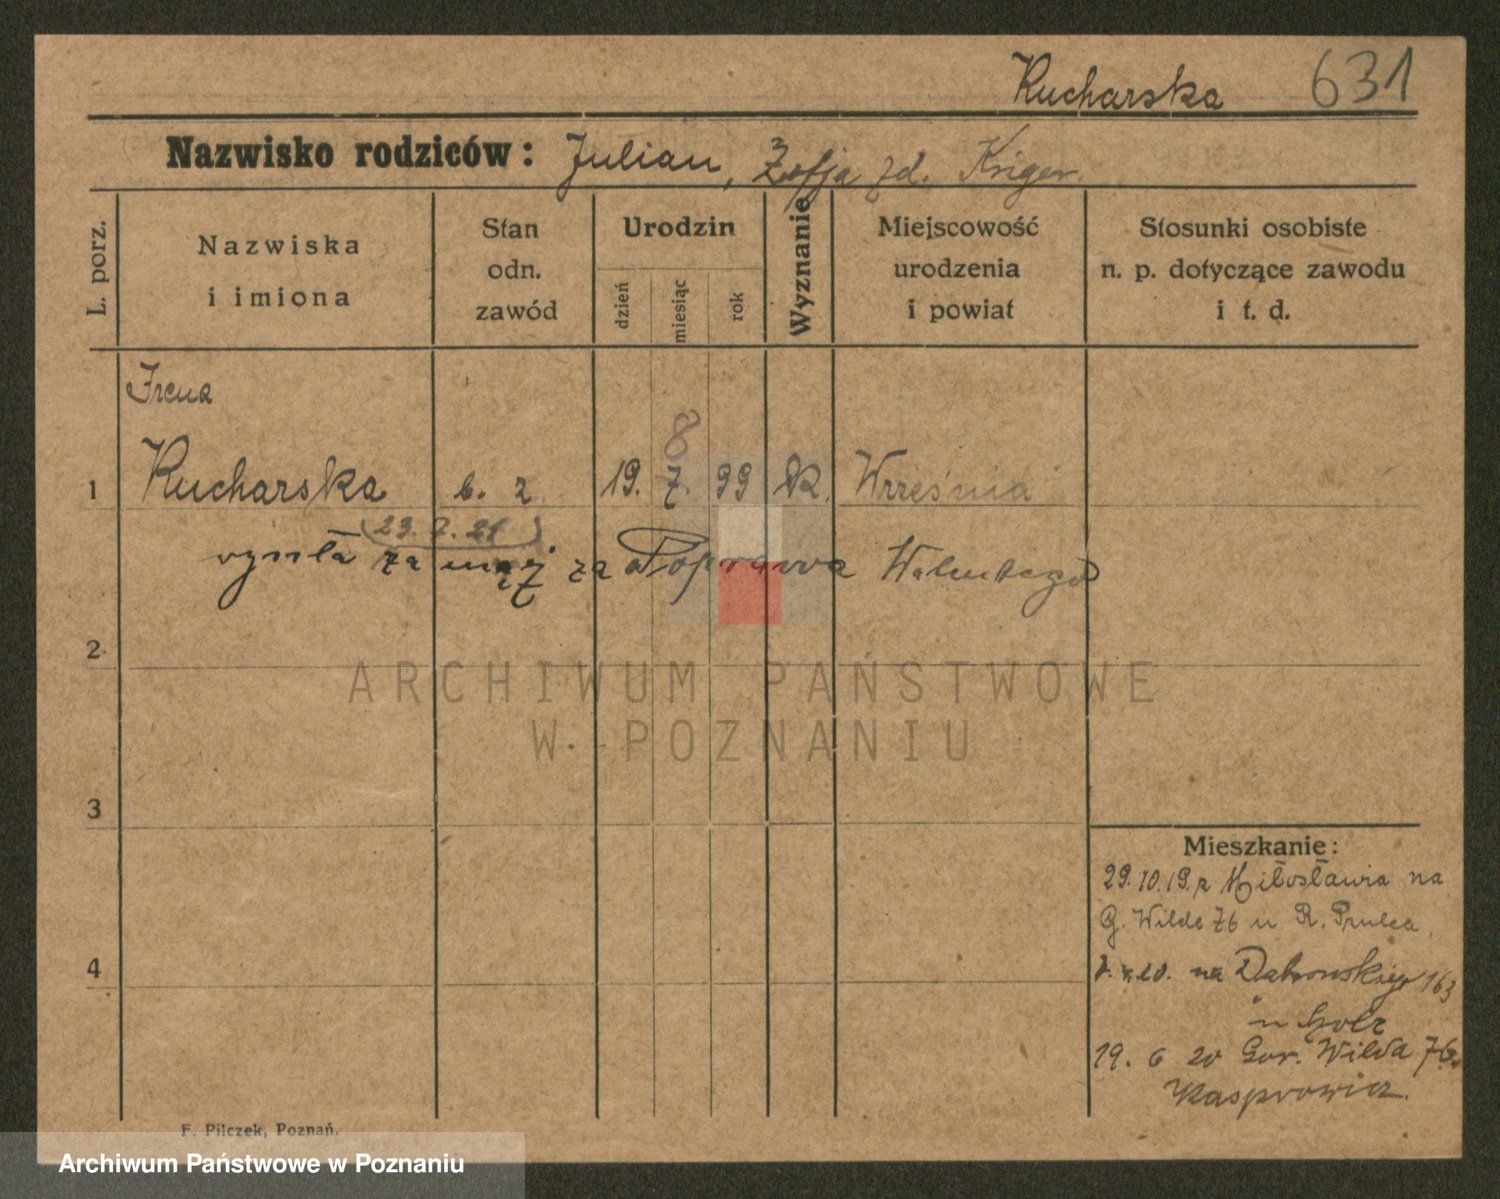 Kucharska 631
Nazwisko rodziców: Julian, Zofja zd. Kriger.
L. porz.
Nazwiska
i imiona
Stan
odn.
zawód
Urodzin
dzień
miesiąc
rok
Wyznanie
Miejscowość
urodzenia
i powiat
Stosunki osobiste
n. p. dotyczące zawodu
i t. d.
Irena
8
1 Kucharska b. z. 19. 7. 99 K. Września
(23. 7. 21)
wyszła za mąż za Poprawa Walentego
2
ARCHIWUM PAŃSTWOWE
W POZNANIU
3
Mieszkanie:
29.10.19. z Miłosławia na
G. Wilde 76 u R.
4
na Dabrowskiego 163
u
19. 6 20 Gor. Wilda 76.
Kasprowicz.
F. Pilczek, Poznań.
Archiwum Państwowe w Poznaniu